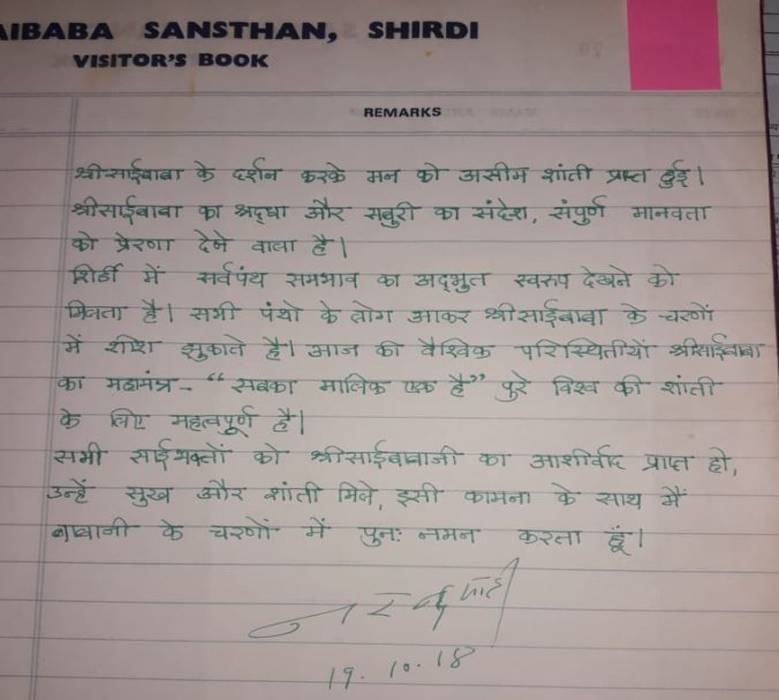 AIBABA SANSTHAN, SHIRDI
VISITOR'S BOOK
REMARKS
श्रीसाईबाबा के दर्शन करके मन को असीम शांती प्राप्त हुई।
श्रीसाईबाबा का श्रद्धा और सबुरी का संदेश, संपुर्ण मानवता
को प्रेरणा देने वाला है।
शिर्डी में सर्वपंथ समभाव का अद्भुत स्वरुप देखने को
मिलता है। सभी पंथो के लोग आकर श्रीसाईबाबा के चरणों
में शीश झुकाते है। आज की वैश्विक परिस्थितीयों श्रीसाईबाबा
का महामंत्र - “सबका मालिक एक है” पुरे विश्व की शांती
के लिए महत्वपूर्ण है।
सभी साईभक्तों को श्रीसाईबाबाजी का आशीर्वाद प्राप्त हो,
उन्हें सुख और शांती मिले, इसी कामना के साथ मैं
बाबाजी के चरणों में पुनः नमन करता हूं।
19.10.18